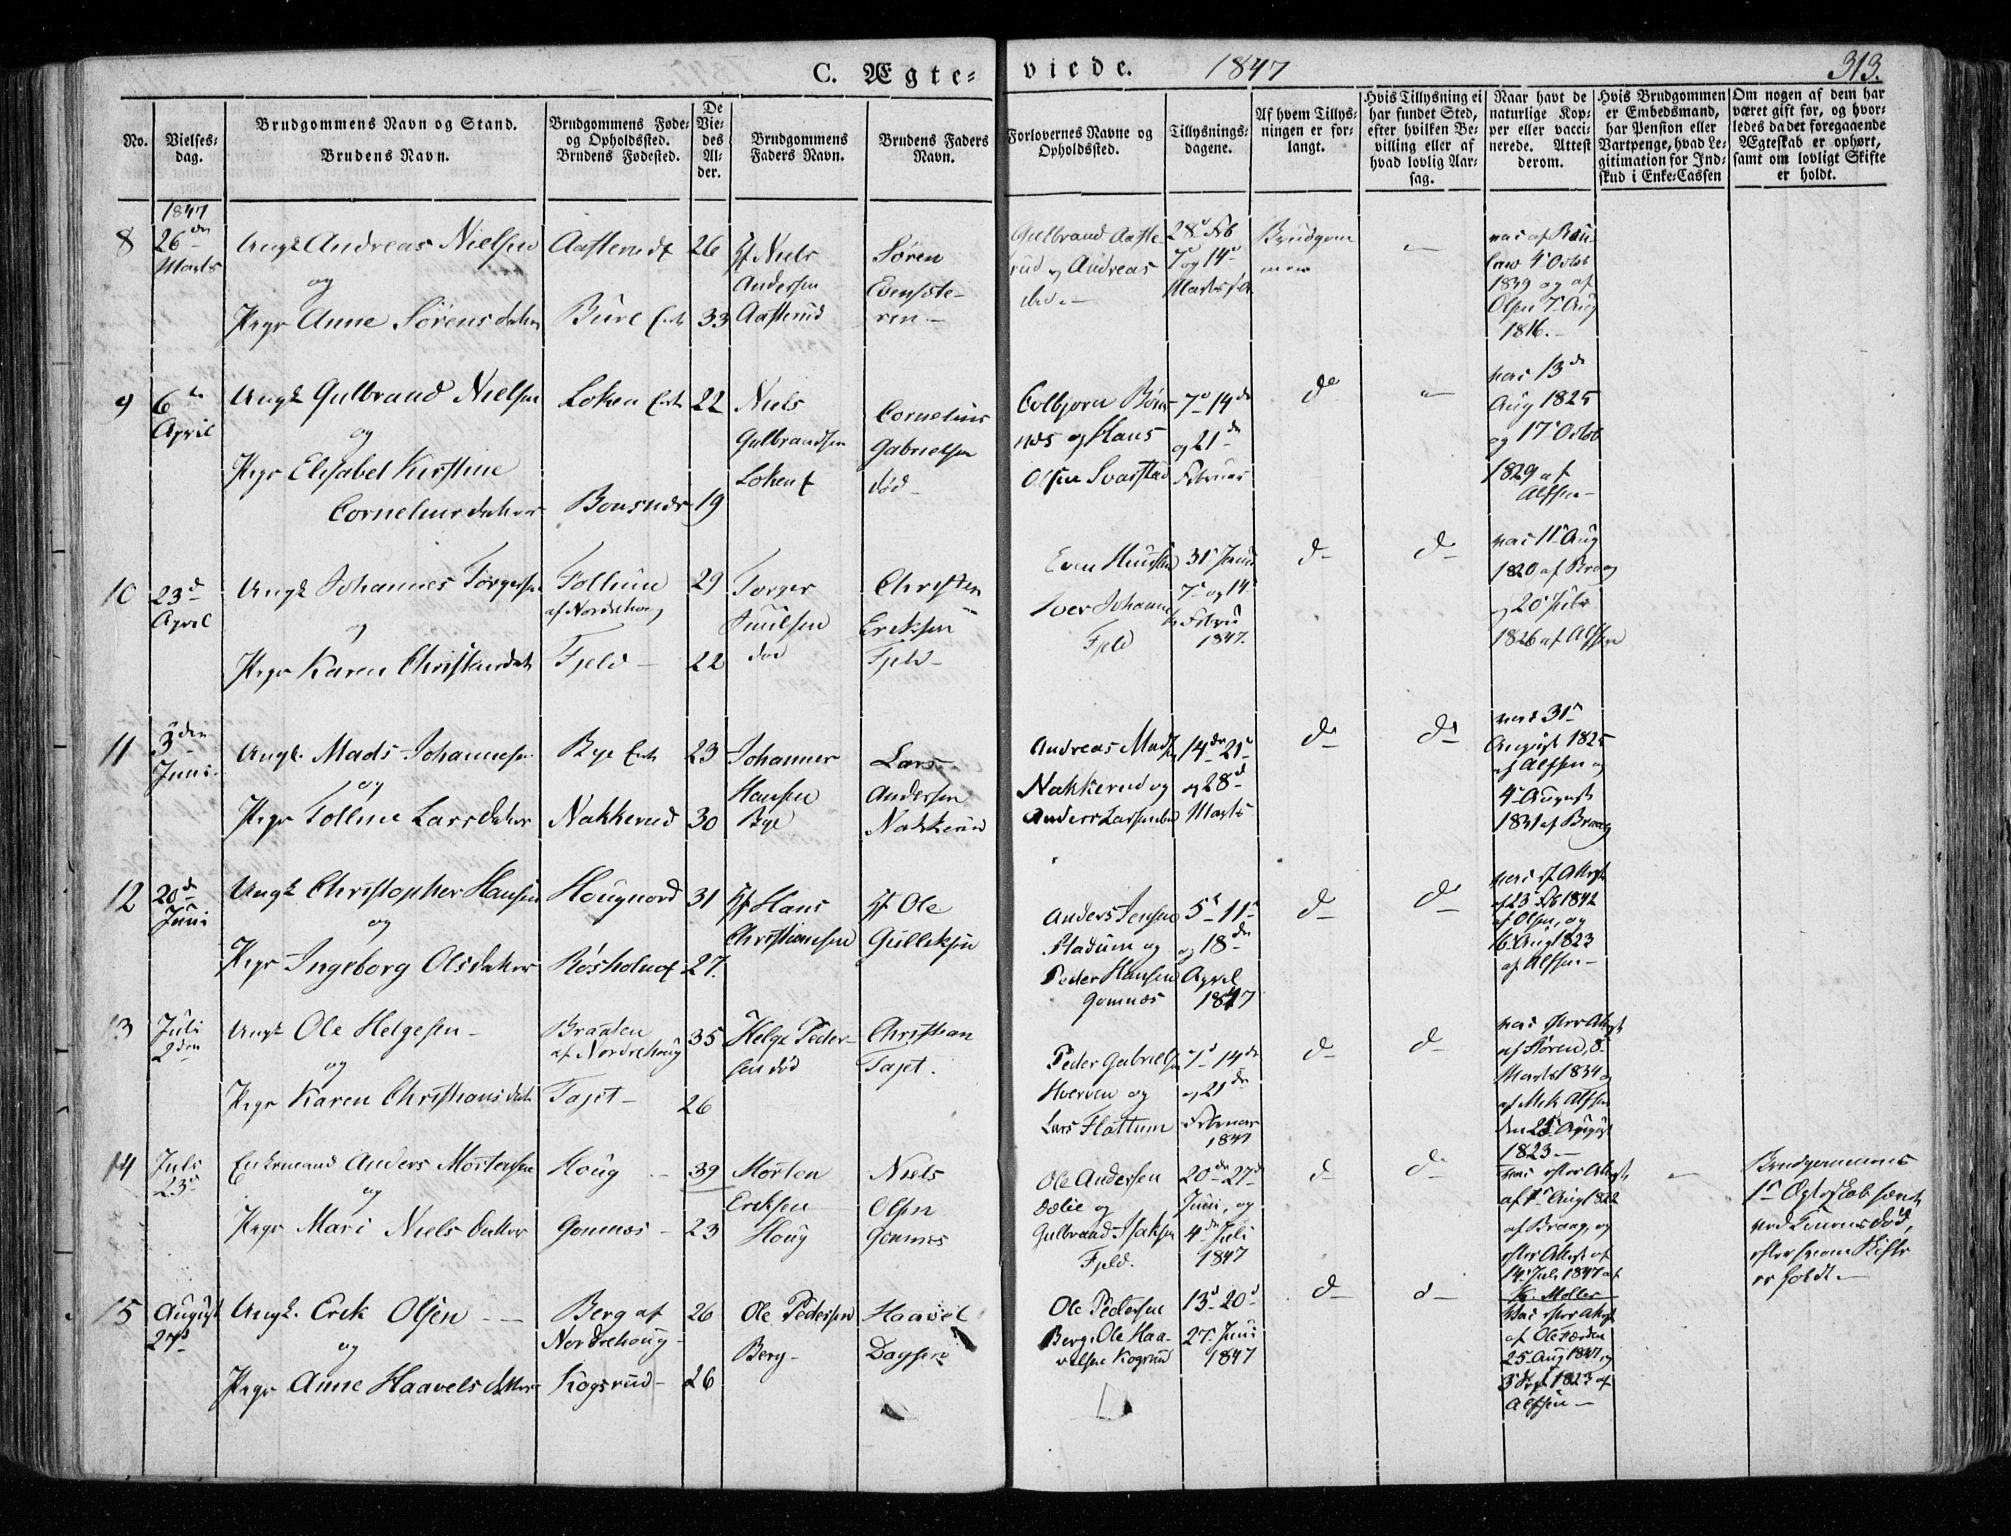 C. Ægte-viede. 1847 313.
No.
Vielses-dag.
Brudgommens Navn og Stand.
Brudens Navn.
Brudgommens Føde- og Opholdssted.
Brudens Fødested.
De Viedes Alder.
Brudgommens Faders Navn.
Brudens Faders Navn.
Forlovernes Navne og Opholdssted.
Tillysnings-dagene.
Af hvem Tillysningen er forlangt.
Hvis Tillysning ei har fundet Sted, efter hvilken Bevilling eller af hvad lovlig Aarsag.
Naar havt de naturlige Kopper eller vaccinerede. Attest derom.
Hvis Brudgommen er Embedsmand, har Pension eller Vartpenge, hvad Legitimation for Indskud i Enke-Cassen
Om nogen af dem har været gift før, og hvorledes da det foregaaende Ægteskab er ophørt, samt om lovligt Skifte er holdt.
1847
8 26 Marts
Ungk Andreas Nielsen
og
Pige Anne Sørensdatter
26
33
Niels Andersen Aasterud
Søren
Gulbrand Aasterud og Andreas
28 Feb 7 og 14 Marts
Brudgommen
4 Octob 1839 og af Olsen 7 Aug 1816.
9 6 April
Ungk Gulbrand Nielsen
og
Pige Elisabet Kirstine Corneliusdatter
Loken
Bonsnæs
22
19
Niels Gulbrandsen Loken
Cornelius Gabrielsen død
Colbjørn Bønsnæs og Hans Olsen Svarstad
7 14 og 21 Februar
do
13 Aug 1825 og 17 Octob 1829 af Alfsen
10 23 April
Ungk Johannes Torgersen
og
Pige Karen Christensdatter
Follum af Norderhoug
Fjeld
29
22
Torger Juulsen død
Christen Eriksen Fjeld
Iver Johannes Fjeld
31 Januar 7 og 14 Febru 1847.
d
d
vac 11 Aug 1820 af Braag og 20 Juli 1826 af Alfsen
11 3den Juni
Ungk. Mads Johannesen
og
Pige Tolline Larsdatter
Bye
Nakkerud
23
30
Johannes Hansen Bye
Lars Andersen Nakkerud
Andreas Madsen Nakkerud og Anders Larsen
14 21 og 28 Marts
d
d
31 August 1825 af Alfsen og 4 August 1831 af Braag
12 20 Juni
Ungk Christopher Hansen
og
Pige Ingeborg Olsdatter
Hougnord
Røsholm
31
27.
Hans Christiansen
Ole Gulliksen
Anders Jensen Stadum og Peder Hansen Gomnæs
5 11 og 18 April 1847
d
d
23 Feb 1842 af Olsen, og 16 Aug 1823 af Alfsen
13 Juli 2den
Ungk Ole Helgesen
og
Pige Karen Christiansdatter
Braaten af Norderhoug
Tajet
35
26
Helge Pedersen død
Christian Tajet.
Peder Gabrielsen Hverven og Lars Flattum
7 14 og 21 Februar 1847
d
d
vac efter Attest af Støren, 8 Marts 1834 og af Alfsen den 25 August 1823
14 Juli 23
Enkemand Anders Mortensen
og
Pige Mari Nielsdatter
Houg
Gomnæs
39
23
Morten Eriksen Houg
Niels Olsen Gomnæs
Ole Andersen Dælie og Gulbrand Isaksen Fjeld.
20 27 Juni, og 4 Juli 1847
d
d
vac efter Attest af 1 Aug 1822 af Braag, og efter Attest af 14 Juli 1847 af Møller
Brudgommens 1 Ægteskab hævet ved Konens død, efter hvem Skifte er holdt.
15 August 27
Ungk. Erik Olsen
og
Pige Anne Haavelsdatter
Berg af Norderhoug
Kogsrud
26
26
Ole Pedersen Berg
Haavel Dagsen
Ole Pedersen Berg, Ole Haavelsen Kogsrud
13 20 27 Juni 1847
d
d
Vac efter Attest af Ole Færden 25 Aug 1847, og 3 Sept 1823 af Alfsen